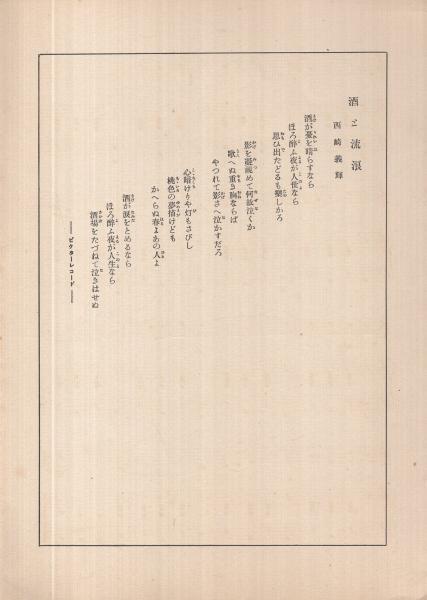 酒と流浪
西崎義輝
酒が憂を晴らすなら
ほろ醉ふ夜が人世なら
思ひ出たどるも樂しかろ
影を凝視めて何故泣くか
歌へぬ重き胸ならば
やつれて影さへ泣かすだろ
心暗けりや灯もさびし
桃色の夢褪けども
かへらぬ春よあの人よ
酒が涙をとめるなら
ほろ醉ふ夜が人生なら
酒場をたづねて泣きはせぬ
―― ビクターレコード ――